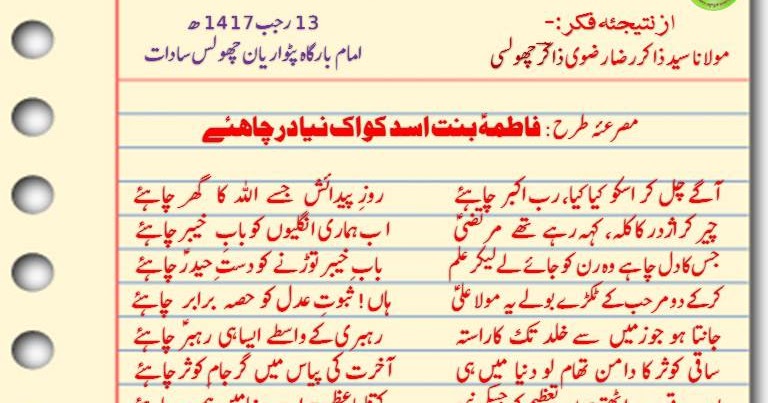 از نتیجۂ فکر:-
13 رجب 1417 ھ
مولانا سید ذاکر رضا رضوی ذاکرؔ چھولسی
امام بارگاہ پٹواریان چھولس سادات
مصرعۂ طرح: فاطمہؑ بنت اسد کو اک نیا در چاہئے
آگے چل کر اسکو کیا کیا، رب اکبر چاہئے روزِ پیدائش جسے اللہ کا گھر چاہئے
چیر کر اژدر کا کلہ، کہہ رہے تھے مرتضیٰؑ اب ہماری انگلیوں کو بابِ خیبر چاہئے
جس کا دل چاہے وہ رن کو جائے لے لیکر علم بابِ خیبر توڑنے کو دستِ حیدرؑ چاہئے
کرکے دو مرحب کے ٹکڑے بولے یہ مولا علیؑ ہاں! ثبوتِ عدل کو حصہ برابر چاہئے
جانتا ہو جو زمیں سے خلد تک کا راستہ رہبری کے واسطے ایسا ہی رہبرؑ چاہئے
ساقی کوثر کا دامن تھام لو دنیا میں ہی آخرت کی پیاس میں گر جامِ کوثر چاہئے